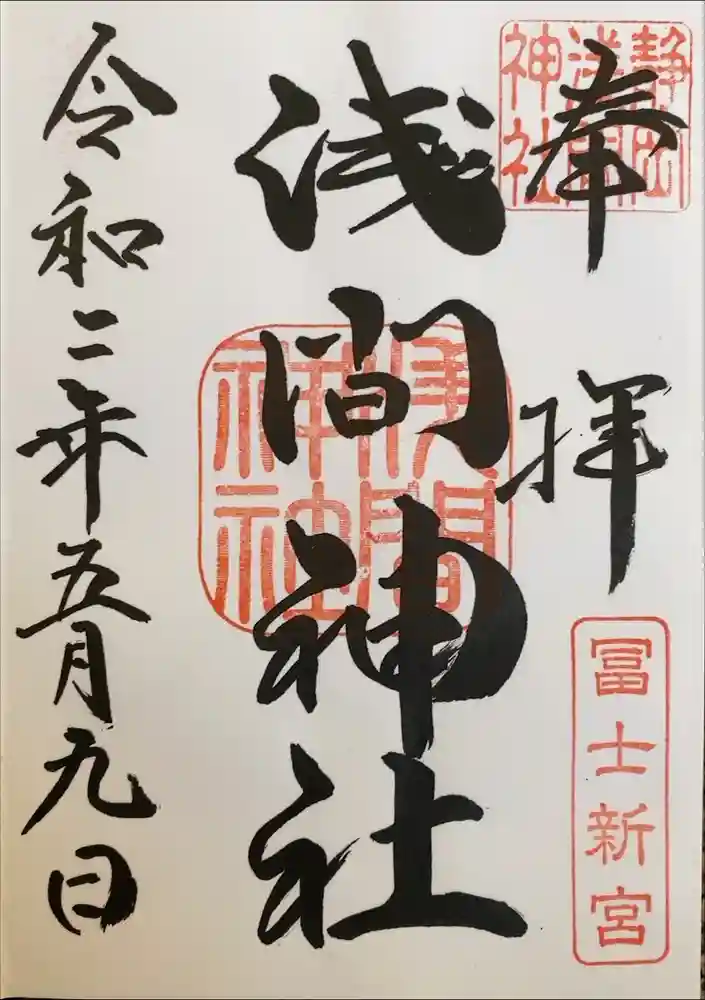 奉拝
静岡
浅間
神社
冨士新宮
浅間神社
浅間
神社
令和二年五月九日